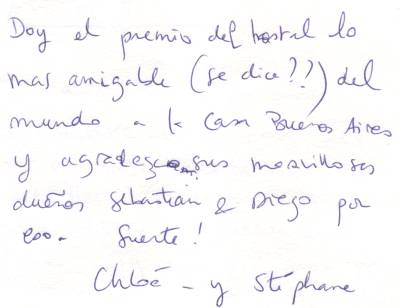 Doy el premio del hostal lo
mas amigable (se dice??) del
mundo a la Casa Buenos Aires
y agradezco sus maravillosos
dueños Sebastian & Diego por
eso. Suerte!
Chloé - y Stéphane